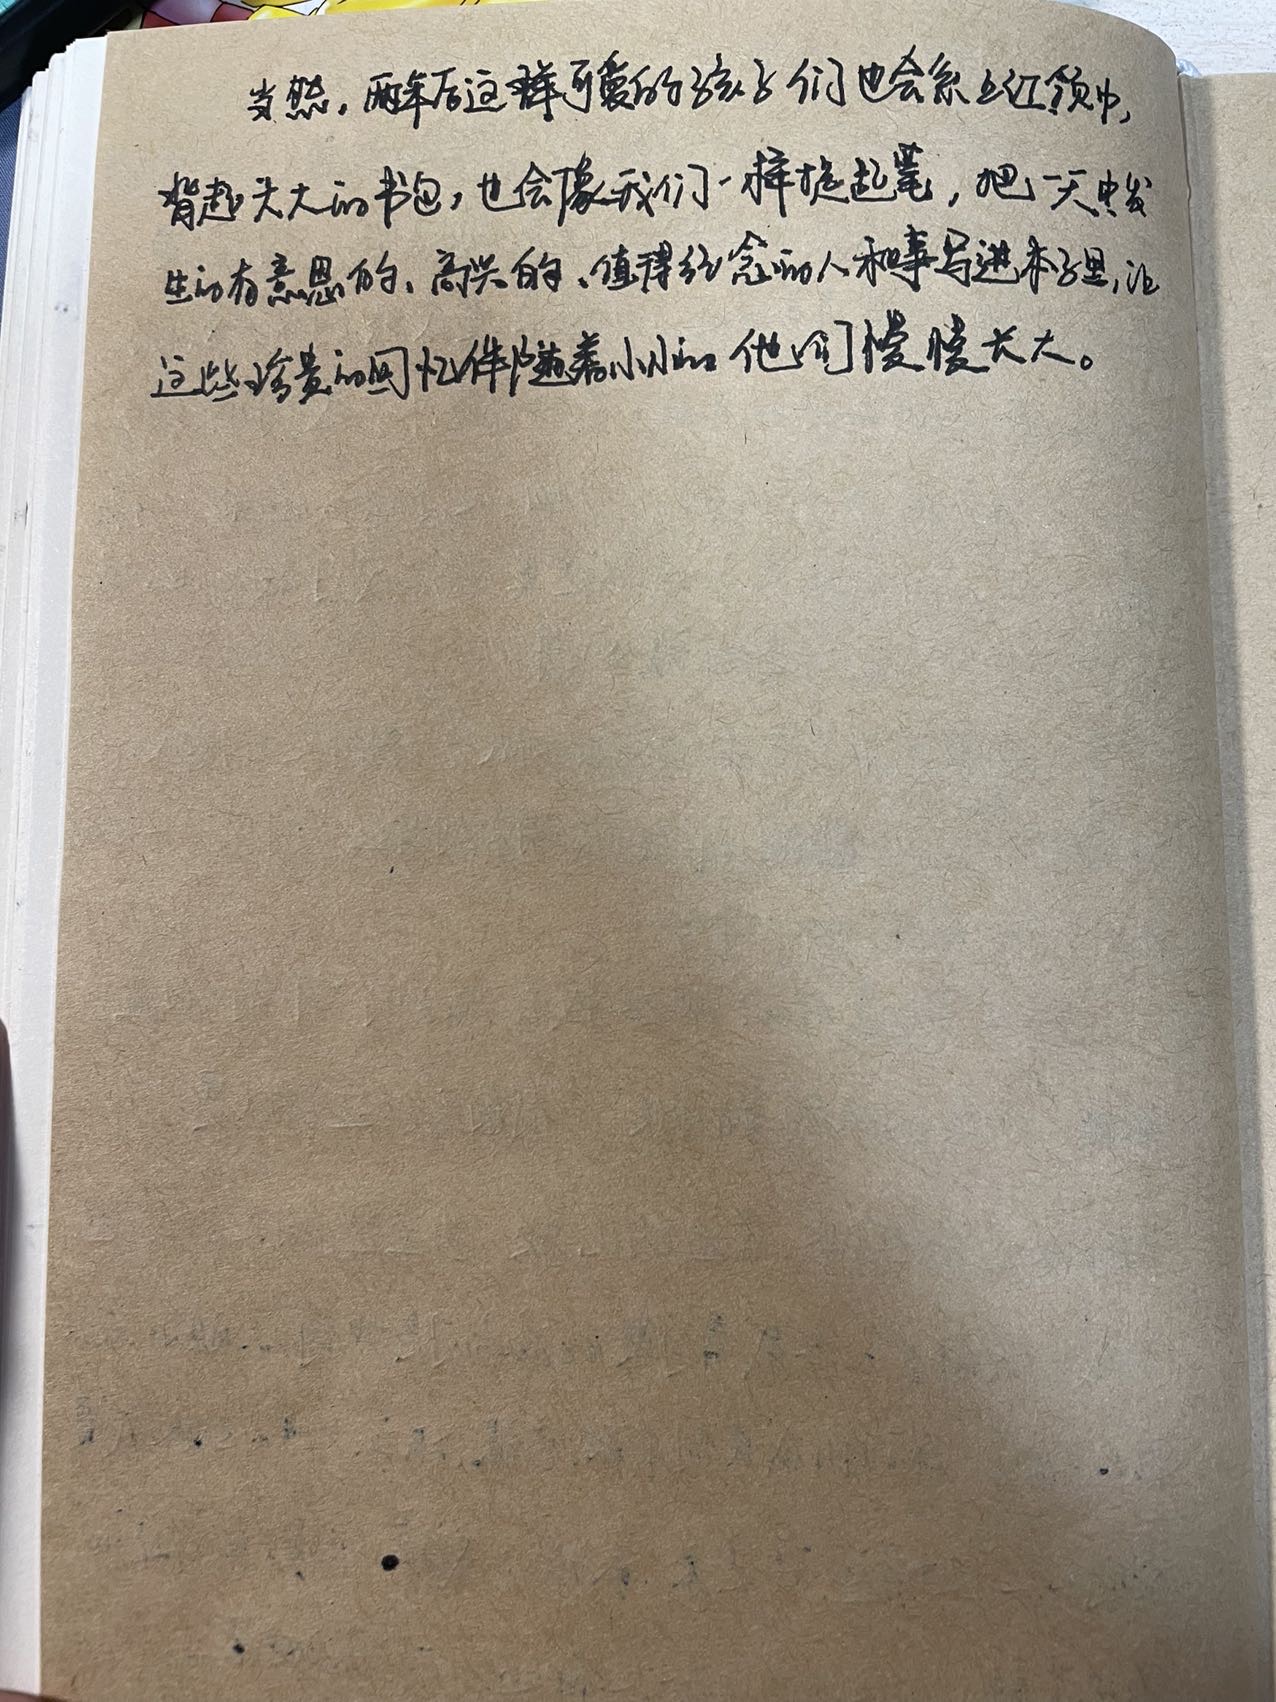 当然，两年后这群可爱的孩子们也会系上红领巾，
背起大大的书包，也会像我们一样提起笔，把一天中发
生的有意思的、高兴的、值得纪念的人和事写进本子里，让
这些珍贵的回忆伴随着小小的他们慢慢长大。